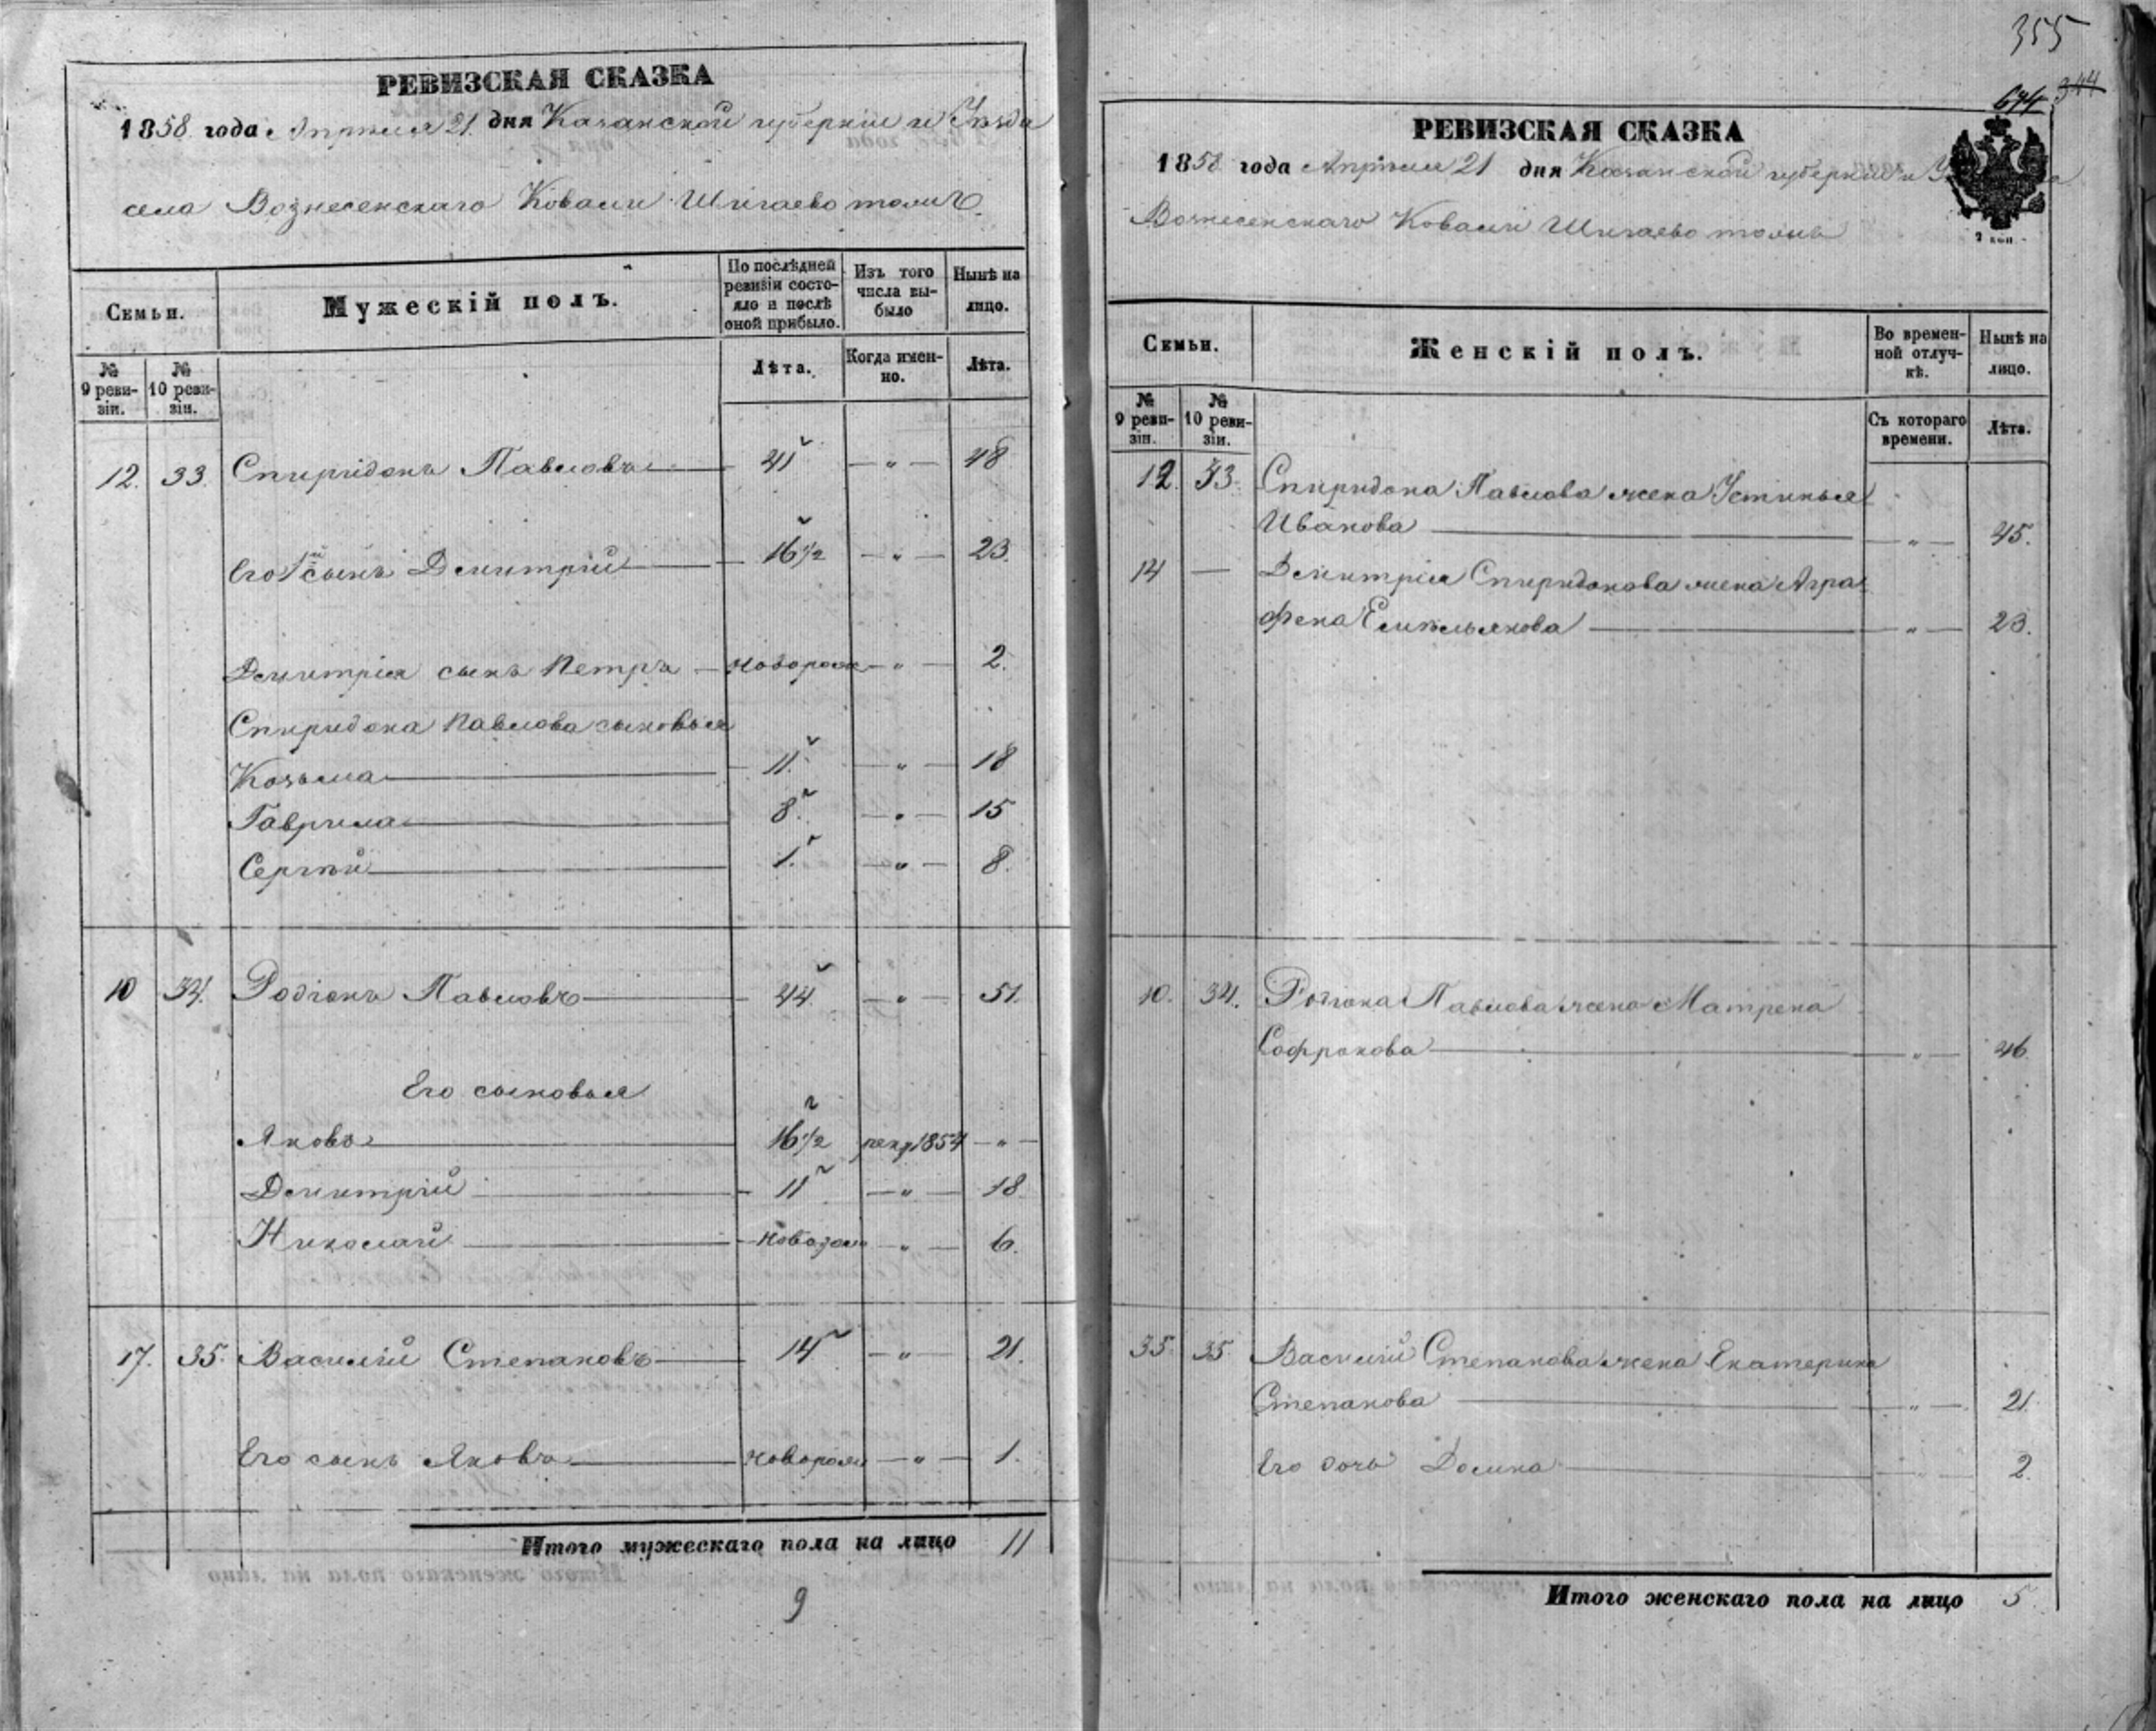 РЕВИЗСКАЯ СКАЗКА
1858 года Апреля 21 дня Казанской губернии и Уезда
села Вознесенскаго Ковали Шигаево толиъ
Семьи.
Мужескій полъ.
По послѣдней ревизіи состояло и послѣ оной прибыло.
Изъ того числа выбыло
Нынѣ на лицо.
№ 9 ревизіи.
№ 10 ревизіи.
Лѣта.
Когда именно.
Лѣта.
12. 33. Спиридонъ Павловъ 41 — „ — 48
Его 1й сынъ Дмитрій 16 1/2 — „ — 23.
Дмитрія сынъ Петръ новорож — „ — 2.
Спиридона Павлова сыновья
Козьма 11. — „ — 18
Гаврила 8. — „ — 15
Сергѣй 1. — „ — 8.
10 34. Родіонъ Павловъ 44 — „ — 51.
Его сыновья
Яковъ 16 1/2 рекр 1854 — „ —
Дмитрій 11 — „ — 18.
Николай новорож — „ — 6.
17. 35. Василій Степановъ 14 — „ — 21.
Его сынъ Яковъ новорож — „ — 1.
Итого мужескаго пола на лицо 11
9
355
674 344
РЕВИЗСКАЯ СКАЗКА
1858 года Апреля 21 дня Казанской губерніи и
Вознесенскаго Ковали Шигаево
2 коп.
Семьи.
Женскій полъ.
Во временной отлучкѣ.
Нынѣ на лицо.
№ 9 ревизіи.
№ 10 ревизіи.
Съ котораго времени.
Лѣта.
12. 33. Спиридона Павлова жена Устинья
Иванова — „ — 45.
14 — Дмитрія Спиридонова жена Агра-
фена Емельянова — „ — 23.
10. 34. Родіона Павлова жена Матрена
Софронова — „ — 46.
35. 35. Василій Степанова жена Екатерина
Степанова — „ — 21.
Его дочь Домна 2.
Итого женскаго пола на лицо 5